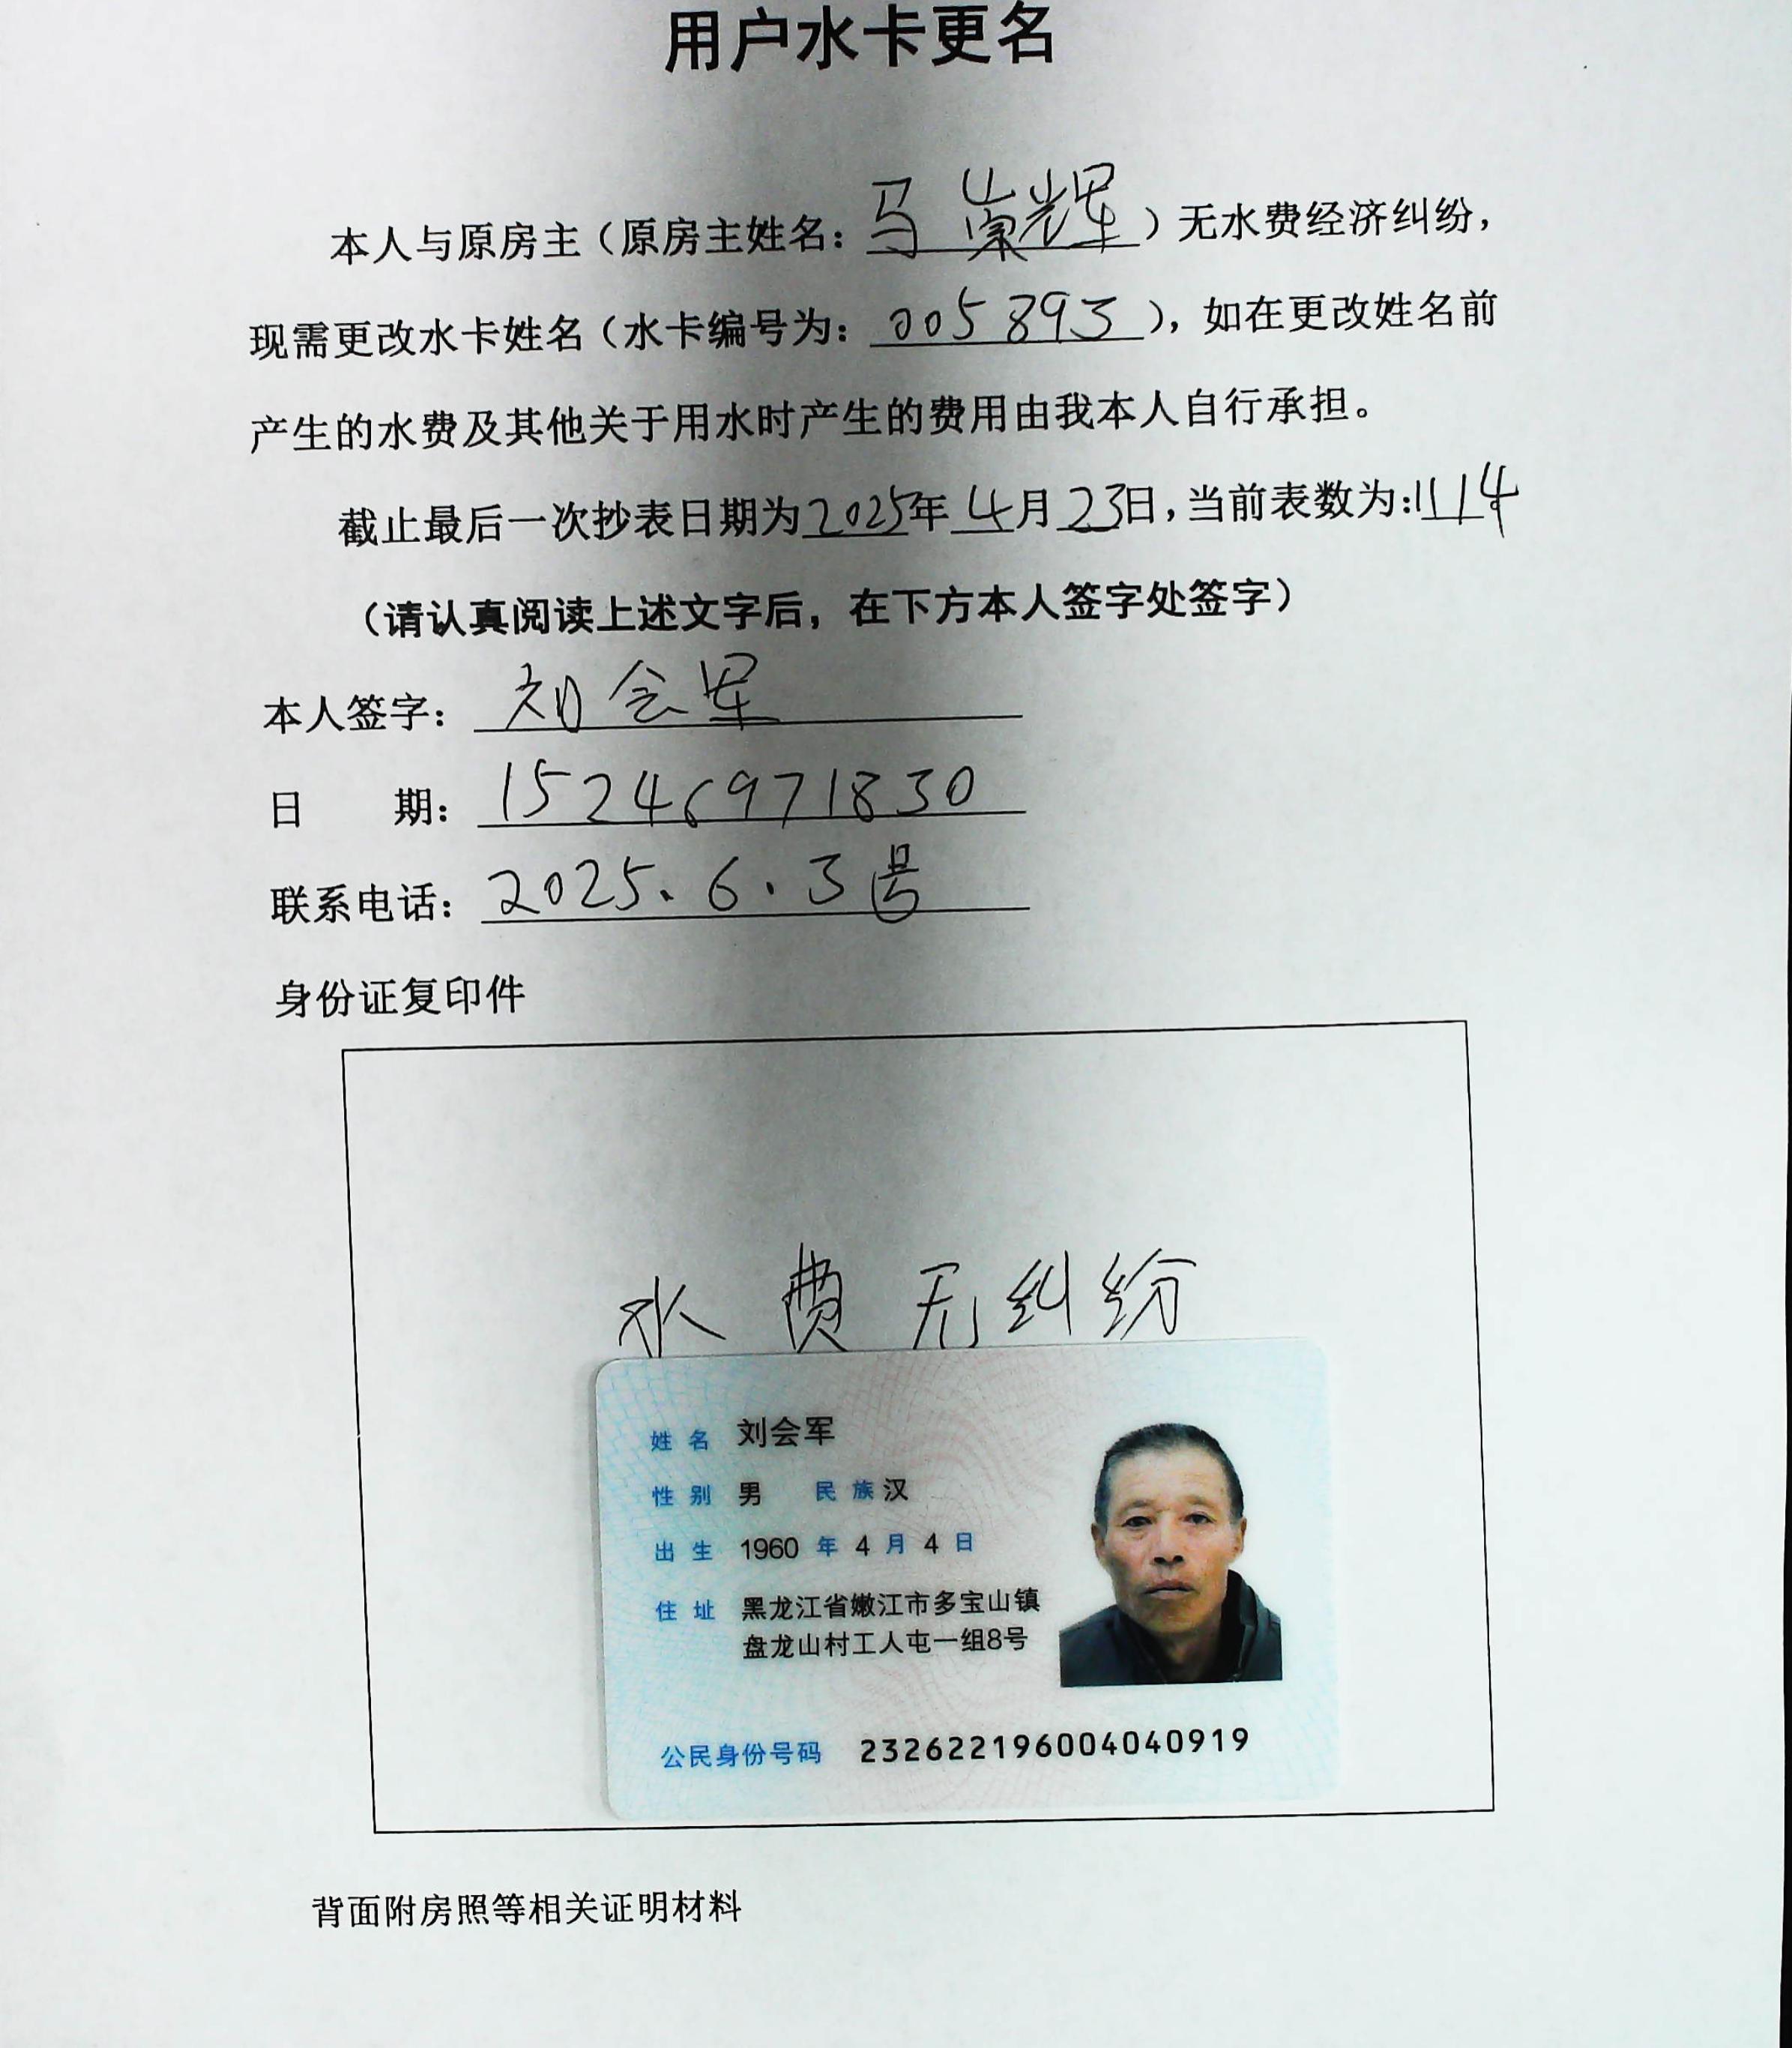 用户水卡更名
本人与原房主（原房主姓名：马崇辉）无水费经济纠纷，
现需更改水卡姓名（水卡编号为：005893），如在更改姓名前
产生的水费及其他关于用水时产生的费用由我本人自行承担。
截止最后一次抄表日期为2025年4月23日，当前表数为：1114
（请认真阅读上述文字后，在下方本人签字处签字）
本人签字：刘会军
日 期：15246971830
联系电话：2025.6.3号
身份证复印件
水费无纠纷
姓名 刘会军
性别 男 民族 汉
出生 1960年4月4日
住址 黑龙江省嫩江市多宝山镇
盘龙山村工人屯一组8号
公民身份号码 232622196004040919
背面附房照等相关证明材料